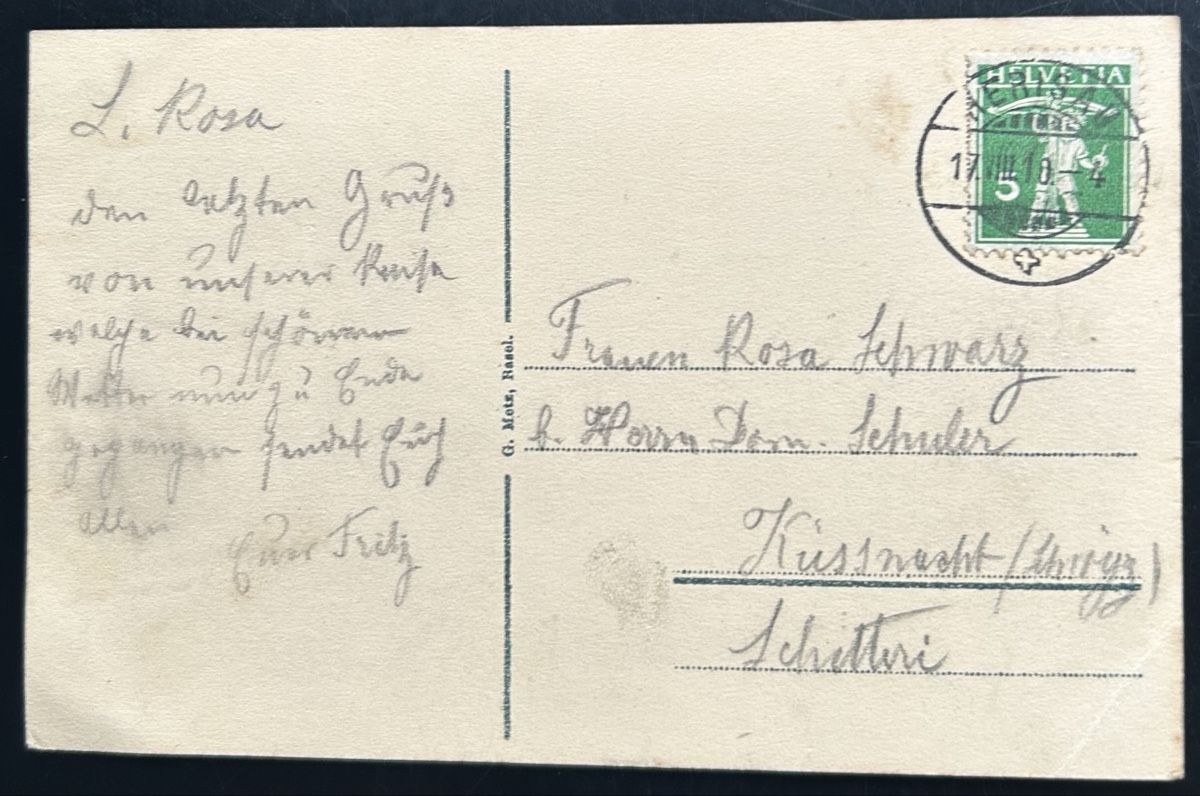 L. Rosa
den letzten Gruß
von unserer Reise
welche bei schönem
Wetter nun zu Ende
gegangen sendet Euch
allen
Euer Fritz
G. Metz, Basel.
HELVETIA
5
HERISAU
17.VIII.10.–4
Frauen Rosa Schwarz
b. Herrn Dom. Schuler
Küssnacht (Schwyz)